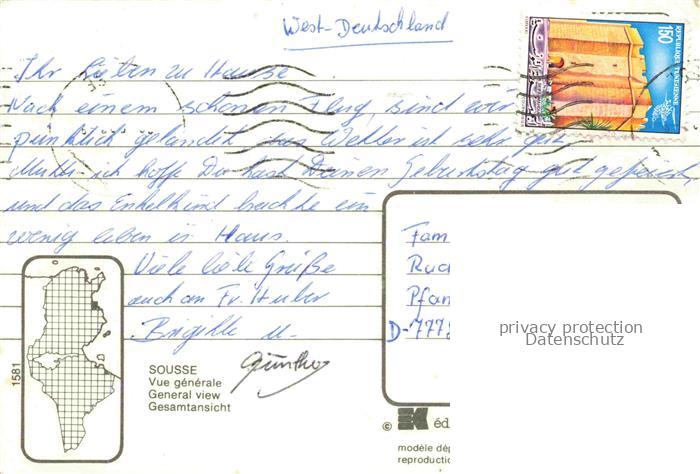 West-Deutschland
REPUBLIQUE TUNISIENNE
150
Ihr Lieben zu Hause
Nach einem schönen Flug, sind wir
pünklich gelandet das Wetter ist sehr gut
Mutter ich hoffe Du hast Deinen Geburtstag gut gefeiert
und das Enkelkind brachte ein
wenig leben in Haus.
Viele liebe Grüße
auch an Fr. Huber
Brigitte u.
Günther
Fam
Pfan
D-777
privacy protection
Datenschutz
1581
SOUSSE
Vue générale
General view
Gesamtansicht
© éd
modèle dép
reproductio